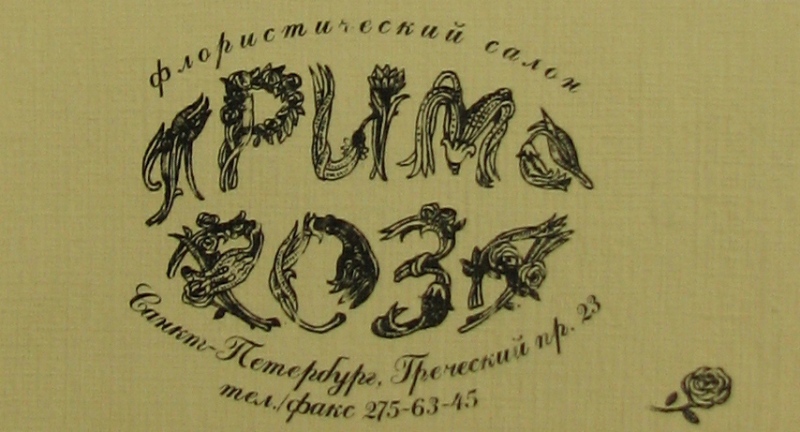 флористический салон
ПРИМа
RОЗА
Санкт-Петербург, Греческий пр. 23
тел./факс 275-63-45